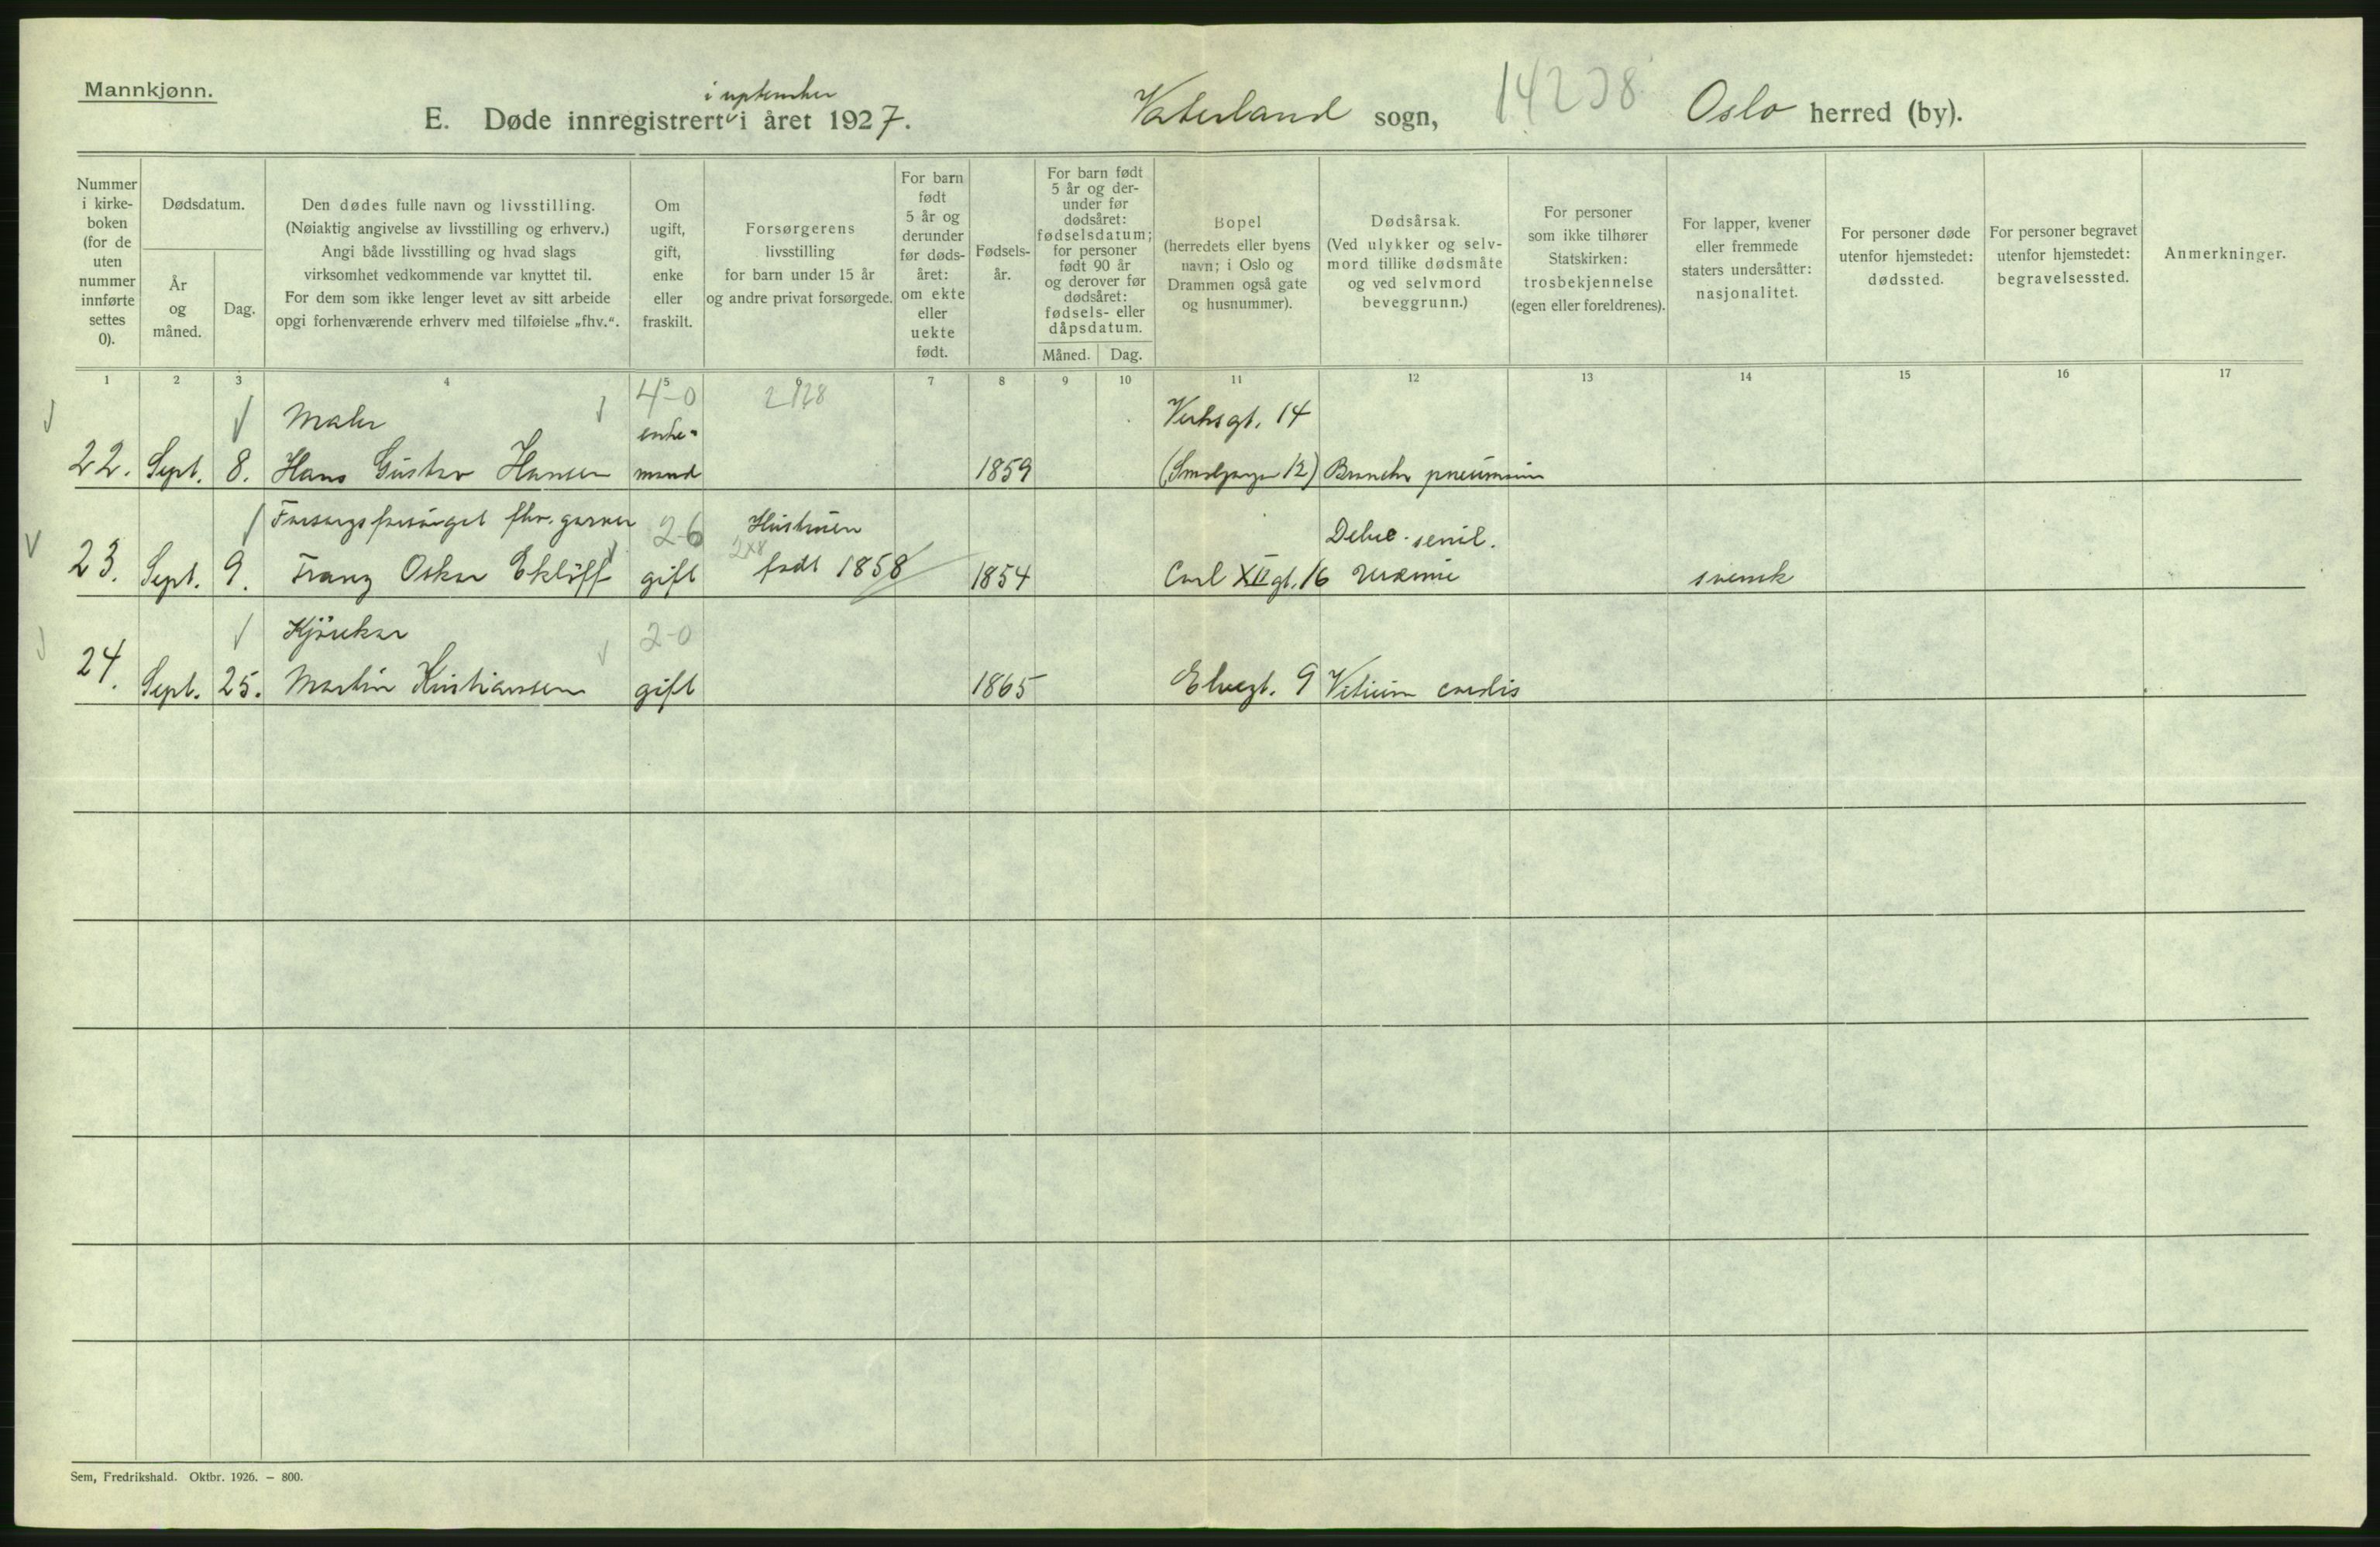 Mannkjønn.
i september
E. Døde innregistrert i året 1927.
Vaterland sogn,
14238
Oslo herred (by).
Nummer i kirke- boken (for de uten nummer innførte settes 0).
Dødsdatum.
År og måned.
Dag.
Den dødes fulle navn og livsstilling.
(Nøiaktig angivelse av livsstilling og erhverv.)
Angi både livsstilling og hvad slags
virksomhet vedkommende var knyttet til.
For dem som ikke lenger levet av sitt arbeide
opgi forhenværende erhverv med tilføielse „fhv.“.
Om ugift, gift, enke eller fraskilt.
Forsørgerens
livsstilling
for barn under 15 år
og andre privat forsørgede.
For barn født 5 år og derunder før døds- året: om ekte eller uekte født.
Fødsels- år.
For barn født 5 år og der- under før dødsåret: fødselsdatum; for personer født 90 år og derover før dødsåret: fødsels- eller dåpsdatum.
Måned.
Dag.
Bopel
(herredets eller byens
navn; i Oslo og
Drammen også gate
og husnummer).
Dødsårsak.
(Ved ulykker og selv-
mord tillike dødsmåte
og ved selvmord
beveggrunn.)
For personer
som ikke tilhører
Statskirken:
trosbekjennelse
(egen eller foreldrenes).
For lapper, kvener
eller fremmede
staters undersåtter:
nasjonalitet.
For personer døde
utenfor hjemstedet:
dødssted.
For personer begravet
utenfor hjemstedet:
begravelsessted.
Anmerkninger.
1 2 3 4 5 6 7 8 9 10 11 12 13 14 15 16 17
Maler 4-0 Verksgt. 14
enke-
22. Sept. 8. Hans Gustav Hansen mand 1859 (Smalgangen 12) Broncho pneumoni
Forsorgsforsörget fhv. garver 2-6 Hustruen Debil. senil.
23. Sept. 9. Franz Oskar Eklöff gift født 1858 1854 Carl XII gt. 16 uræmie svensk
Kjörekar 2-0
24. Sept. 25. Martin Kristiansen gift 1865 Elvegt. 9 Vitium cordis
Sem, Fredrikshald. Oktbr. 1926. – 800.